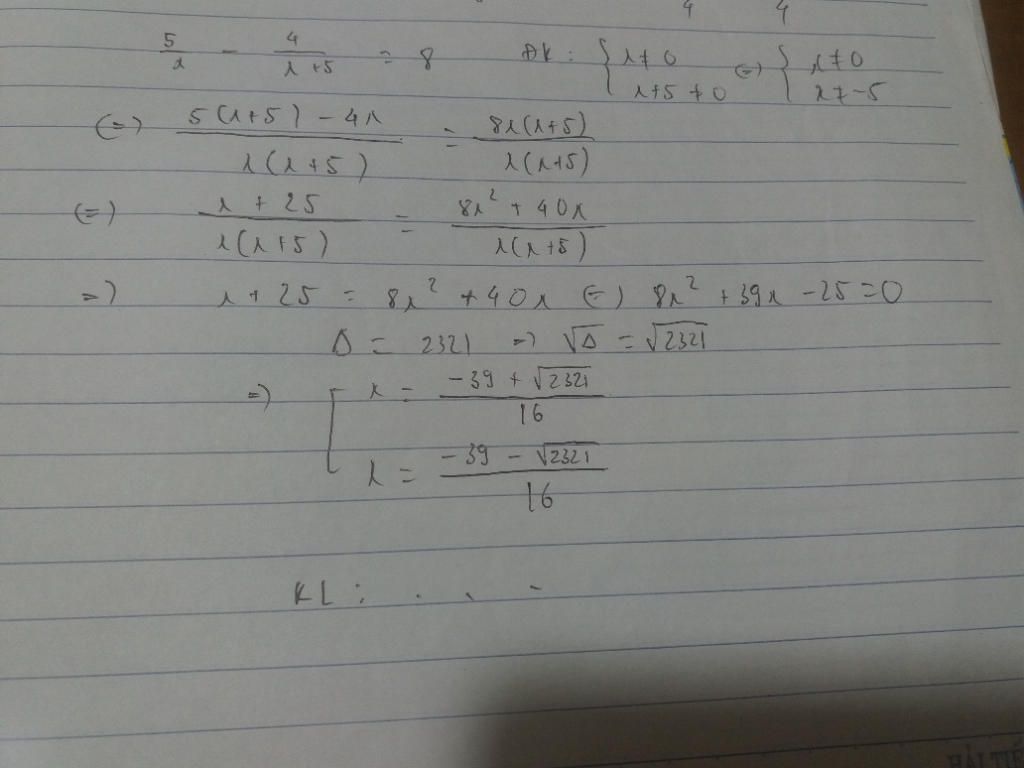 4 4
5/x - 4/(x+5) = 8 ĐK: { x≠0 x+5≠0 (=) { x≠0 x≠-5
(=) (5(x+5) - 4x)/(x(x+5)) = (8x(x+5))/(x(x+5))
(=) (x + 25)/(x(x+5)) = (8x² + 40x)/(x(x+5))
=) x + 25 = 8x² + 40x (=) 8x² + 39x - 25 = 0
Δ = 2321 =) √Δ = √2321
=) [ x = (-39 + √2321)/16
x = (-39 - √2321)/16
KL : . . -
HẢI TIẾ